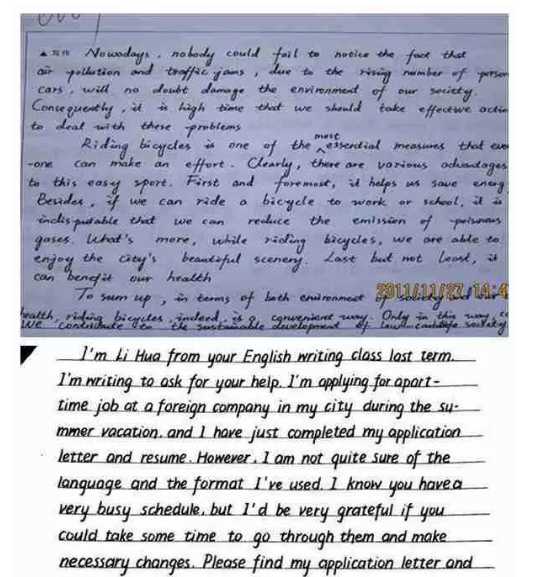 Nowadays, nobody could fail to notice the fact that
air pollution and traffic jams, due to the rising number of person
cars, will no doubt damage the environment of our society.
Consequently, it is high time that we should take effective actio
to deal with these problems
Riding bicycles is one of the most essential measures that eve
-one can make an effort. Clearly, there are various advantages
to this easy sport. First and foremost, it helps us save energ
Besides, if we can ride a bicycle to work or school, it is
indisputable that we can reduce the emission of poisonous
gases. What's more, while riding bicycles, we are able to
enjoy the city's beautiful scenery. Last but not least, it
can benefit our health
To sum up, in terms of both environment
2011/11/27 14:4
health, riding bicycles indeed is a convenient way. Only in this way, c
we contribute to the sustainable development of society
I'm Li Hua from your English writing class last term.
I'm writing to ask for your help. I'm applying for apart-
time job at a foreign company in my city during the su-
mmer vacation, and I have just completed my application
letter and resume. However, I am not quite sure of the
language and the format I've used. I know you have a
very busy schedule, but I'd be very grateful if you
could take some time to go through them and make
necessary changes. Please find my application letter and